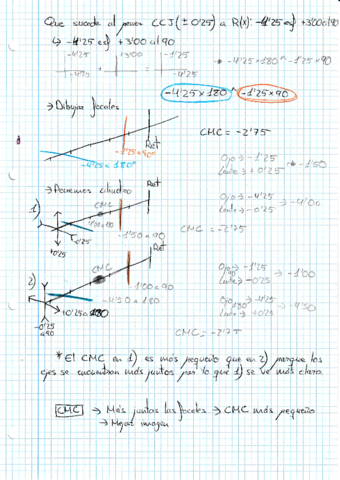 Que sucede al poner CCJ (±0'25) a R(x): -4'25 esf +3'00 al 90
↳ -4'25 esf +3'00 al 90
-4'25 +3'00 -1'25
-4'25 -4'25
* -4'25 x 180 ^ -1'25 x 90
-4'25 x 180 ^ -1'25 x 90
→ Dibujar focales
Ret
-1'25 a 90º
-4'25 a 180º
CMC = -2'75
Ojo → -1'25
Lente → +0'25
-1'50
→ Ponemos cilindro
1)
Ret
CMC
4'00 a 180
-1'50 a 90
-0'25
+0'25
Ojo → -4'25
Lente → -0'25
-4'00
CMC = -2'75
2)
Ret
CMC
-1'00 a 90
-4'50 a 180
+0'25 a 180
-0'25
a 90
Ojo → -1'25
90
Lente → -0'25
-1'00
Ojo → -4'25
180
Lente → +0'25
-4'50
CMC = -2'75
* El CMC en 1) es más pequeño que en 2) porque los
ejes se encuentran más juntos por lo que 1) se ve más claro.
CMC → Más juntas las focales → CMC más pequeño
→ Mejor imagen